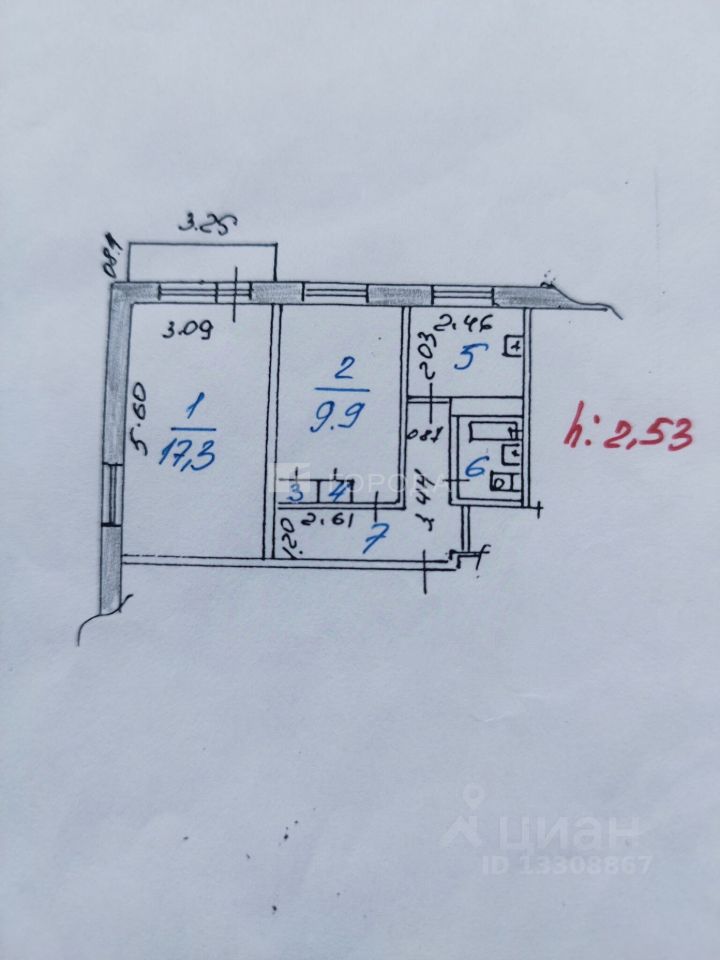 3.25
0.81
3.09
5.60
1
17,3
2
9.9
2.46
2.03
5
h: 2,53
6
3
4
ГОРОДА
3.44
2.61
1.20
7
циан
ID 13308867